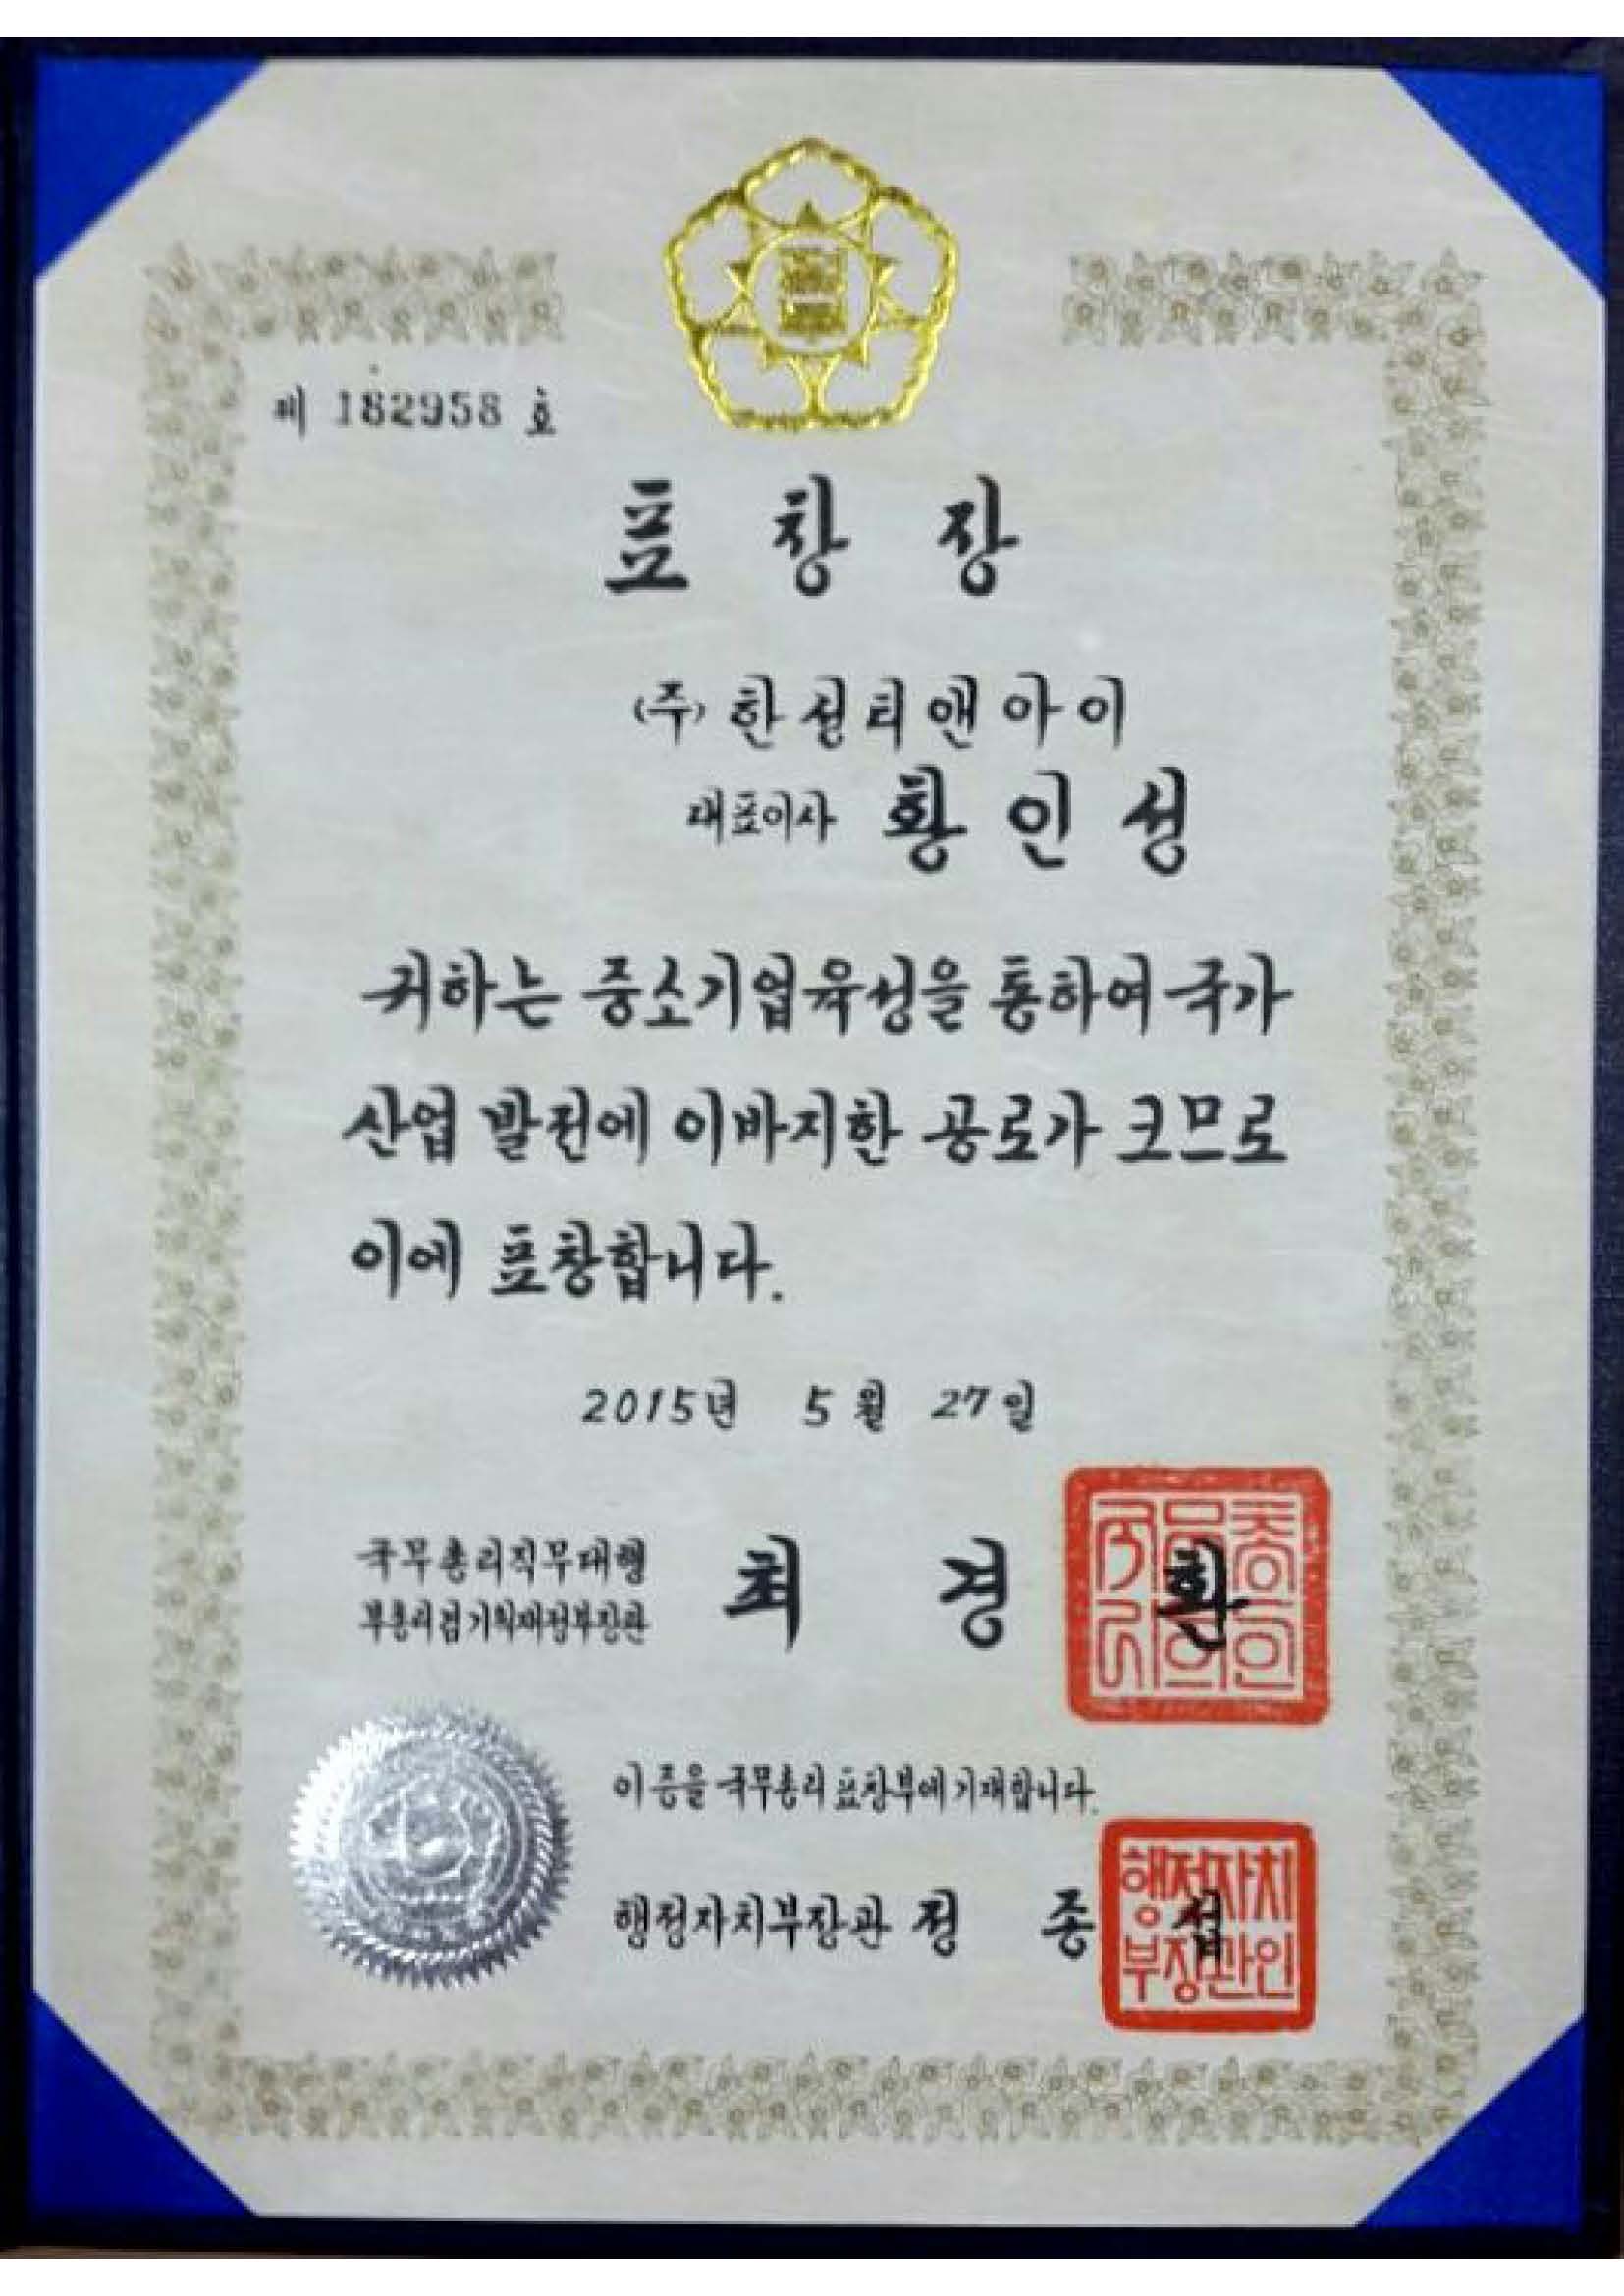 제 182958 호
표 창 장
(주) 한설티앤아이
대표이사 황 인 성
귀하는 중소기업육성을 통하여 국가
산업 발전에 이바지한 공로가 크므로
이에 표창합니다.
2015년 5월 27일
국무총리직무대행
부총리겸기획재정부장관 최 경 환
이 증을 국무총리 표창부에 기재합니다.
행정자치부장관 정 종 섭
행정자치
부장관인